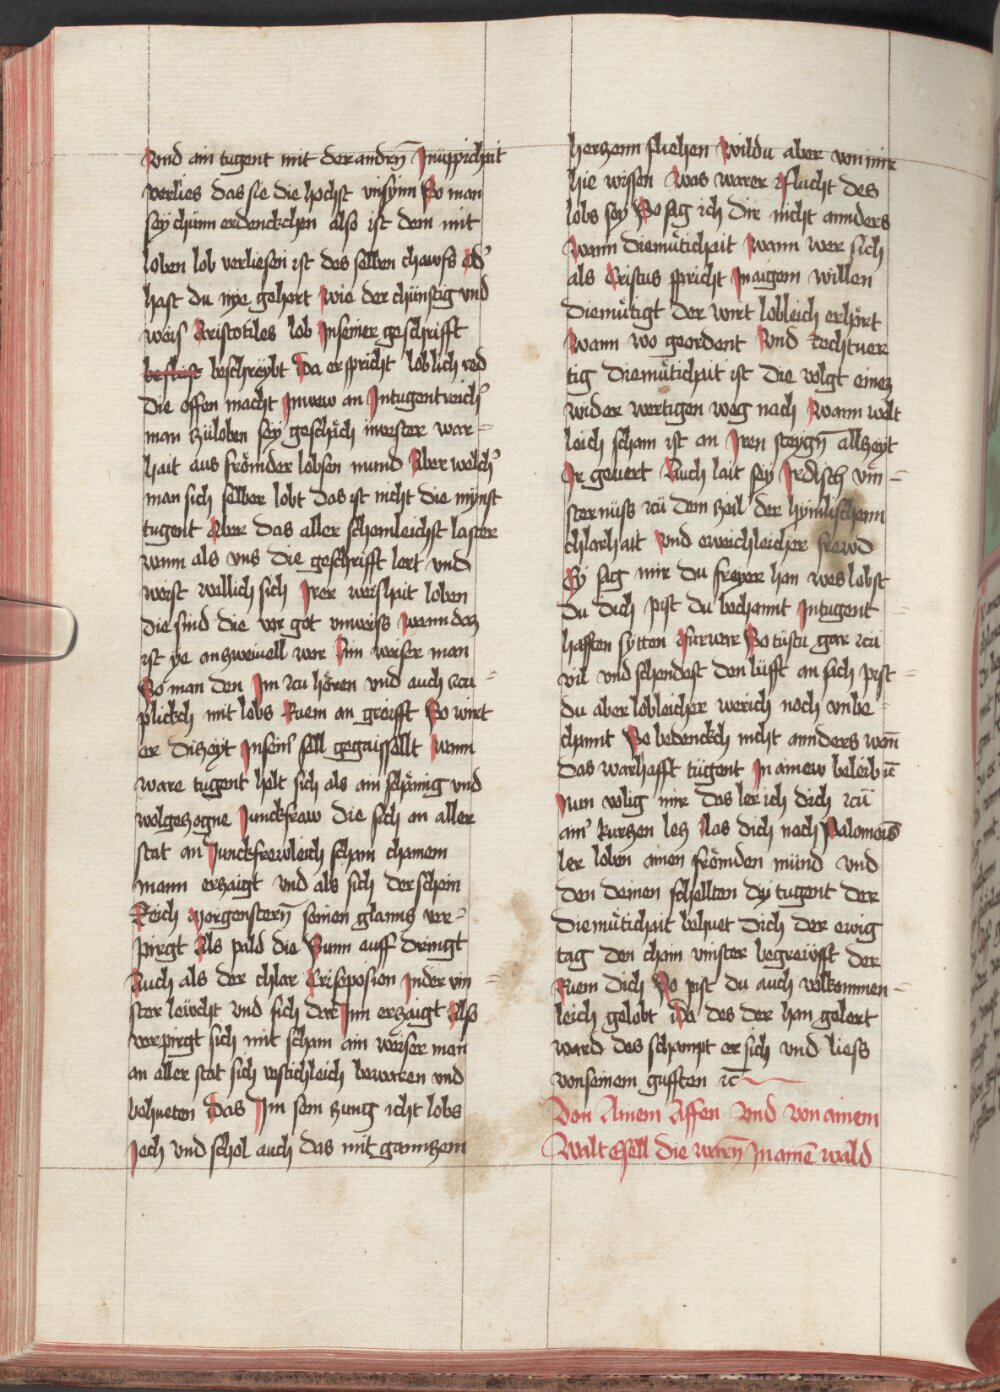 Vnd ain tugent mit der andrñ Inüppichait
verlies das sie die hochst vnsynn So man
sey chünn erdenckchen also ist dem mit
loben lob verliesen ist des selben chawfs od'
hast du nye gehort wie der chünstig vnd
weis Aristotiles lob Inseiner geschrifft
beschreybt Da er spricht loblich red
die offen macht Inwew an Intugentreich'
man zůloben sey geschäch inerster war-
hait aus frömder lobsen mund Aber welch'
man sich selber lobt das ist nicht die mynst
tugent Aber das aller schemleichst laster
wann als vns die geschrifft lert vnd
weist wellich sich Irer weishait loben
die sind die vor got vnweiss wann daz
ist ye an zweinell wer Ain weiser man
So man den Im zcu hören vnd auch zcu-
plickch mit lobs Ruem an greifft So wirt
er dizeyt Inseins sell gegaissellt wann
ware tugent helt sich als ain schämig vnd
wolgezogne Junckfraw die sich an aller
stat an Junckfrewleich scham chamem
mann erzaigt vnd als sich der schein
Reich Morgensterñ seinen glanns ver-
pirgt Als pald die Sunn auff dringt
Auch als der chlar Crisoposion Inder vin
ster lewcht vnd sich dar Inn erzaigt Also
verpirgt sich mit scham ain weiser man
an aller stat sich vestichleich bewaren vnd
behueten Das Im sein zung icht lobs
Jech vnd schol auch das mit gannzem
herzenn fliehen Wildu aber von mir
hie wissen Was warer zflucht des
lobs sey So sag ich dir nicht annders
Wann diemütichait Wann wer sich
als Cristus spricht Inaigem willen
diemütigt der wirt lobleich erhört
Wann wo geordent Vnd rechtuer
tig diemütichait ist die volgt einez
wider wertigen weg nach Wann welt
leich scham ist an Iren steygñ allzeyt
Ir geuert Auch lait sey Irdisch vin-
sternüss zcü dem heil der hymlischenn
chlarhait Vnd eweichleicher frewd
Ey sag mir du freyer han wes lobst
du dich pist du bechannt Intugent
hafften sytten Furwar So tüstu gar zcu
vil vnd schendest den lüfft an sich pist
du aber lobleicher werich noch vnbe
channt So bedenckch nicht annders weñ
das warhafft tügent In ainew beleibñ
Nun volig mir das ler ich dich zcü
ain' kurzen lez Las dich nach Salomons
ler loben ainen frömden münd vnd
den deinen schellten dy tugent der
diemütichait behuet dich der ewig
tag den chain vinster begreifft der
Ruem dich So pist du auch volkommen-
leich gelobt Da des der han gelert
ward des schampt er sich vnd liess
von seinem gufften ꝛc
Von Ainem Affen Vnd von ainem
Walt Esell die warñ In ainē wald